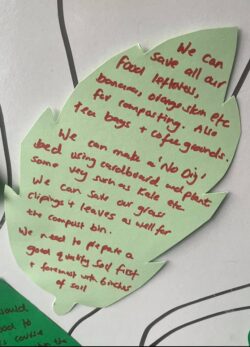 We can
save all our
food leftovers,
bananas, orange skin etc
for composting. Also
tea bags + cofee grounds.
We can make a 'No Dig'
bed using cardboard and plant
some veg such as Kale etc
We can save our grass
clipings + leaves as well for
the compost bin.
We need to prepare a
good quality soil first
+ foremost with 6 inches
of soil
would
good to
course
the